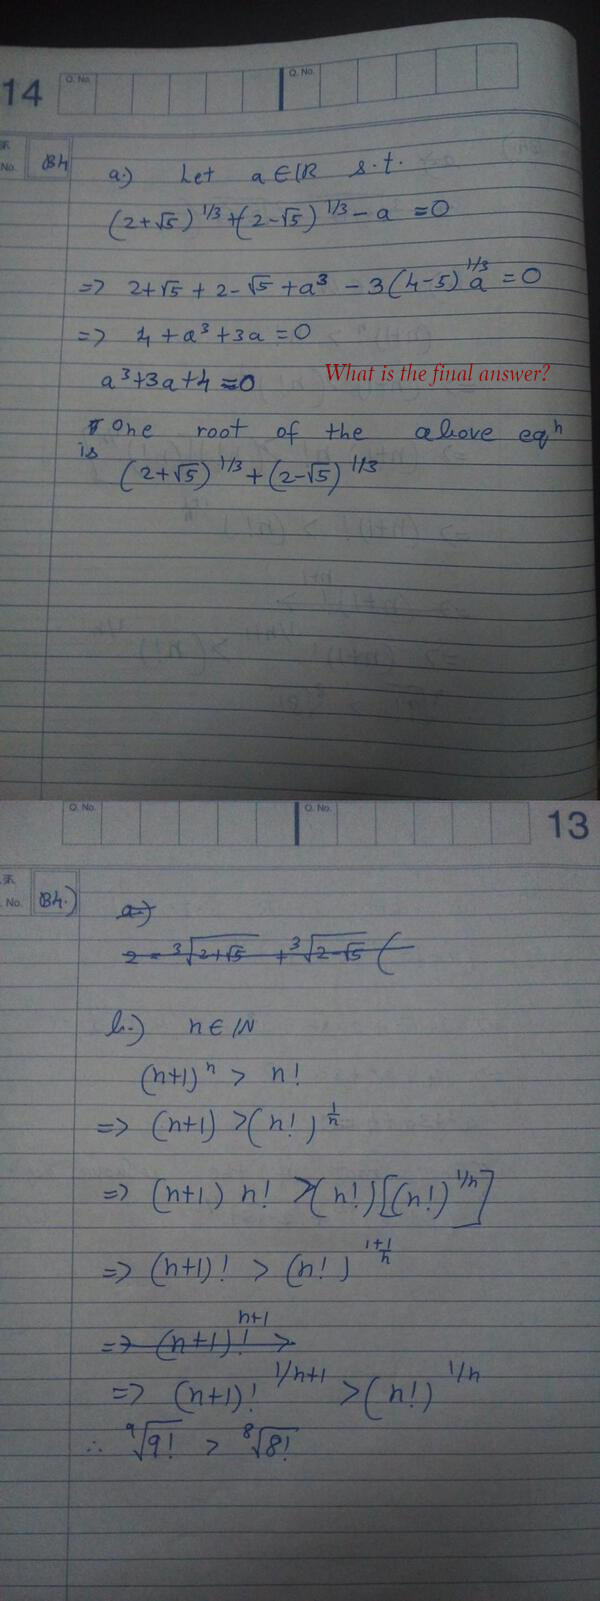 14
Q. No.
Q. No.
No.
B4
a.) Let a ∈ IR s.t.
(2+√5)^1/3 + (2-√5)^1/3 - a = 0
=> 2+√5 + 2-√5 + a³ - 3(4-5)^1/3 a = 0
=> 4 + a³ + 3a = 0
a³+3a+4=0
What is the final answer?
One root of the above eqⁿ
is (2+√5)^1/3 + (2-√5)^1/3
Q. No.
Q. No.
13
No.
B4.)
a.)
2 = ³√2+√5 + ³√2-√5 (
b.) n ∈ IN
(n+1)^n > n!
=> (n+1) > (n!)^1/n
=> (n+1) n! > (n!)[(n!)^1/n]
=> (n+1)! > (n!)^1+1/n
=> (n+1)!^n+1 >
=> (n+1)!^1/n+1 > (n!)^1/n
∴ ⁹√9! > ⁸√8!